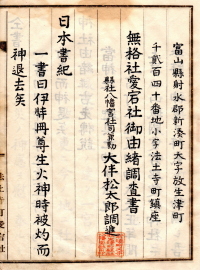 富山縣射水郡新湊町大字放生津町
千貳百四十番地小字法土寺町鎮座
無格社愛宕社御由緒調査書
縣社八幡宮社司兼勤 大伴松太郎調進
日本書紀
一書曰伊弉冊尊生火神時被灼而
神退去矣